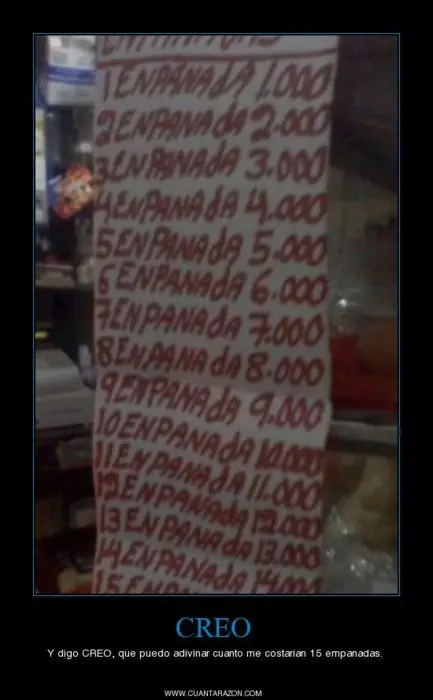 1 ENPANAdA 1.000
2 ENPANAdA 2.000
3 ENPANAdA 3.000
4 ENPANAdA 4.000
5 ENPANAdA 5.000
6 ENPANAdA 6.000
7 ENPANAdA 7.000
8 ENPANAdA 8.000
9 ENPANAdA 9.000
10 ENPANAdA 10.000
11 ENPANAdA 11.000
12 ENPANAdA 12.000
13 ENPANAdA 13.000
14 ENPANAdA 14.000
15
CREO
Y digo CREO, que puedo adivinar cuanto me costarian 15 empanadas.
WWW.CUANTARAZON.COM